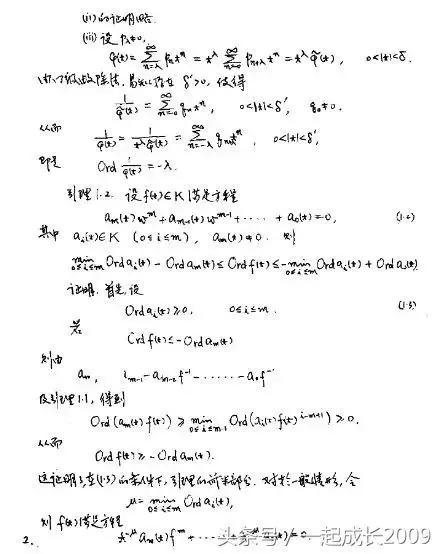 (ii) 的证明略.
(iii) 设 pλ≠0,
φ(t)=∑_{n=λ}^{∞} p_n t^n = t^λ ∑_{n=0}^{∞} p_{n+λ} t^n = t^λ φ̃(t), 0<|t|<δ.
存在 δ'>0, 使得
1/φ̃(t) = ∑_{n=0}^{∞} q_n t^n, 0<|t|<δ', q_0≠0,
从而
1/φ(t) = 1/(t^λ φ̃(t)) = ∑_{n=-λ}^{∞} t^n, 0<|t|<δ',
即是 Ord 1/φ(t) = -λ.
引理 1.2. 设 f(t)∈K 满足方程
a_m(t)w^m + a_{m-1}(t)w^{m-1} + ····· + a_0(t) = 0, (1.2)
其中 a_i(t)∈K (0≤i≤m), a_m(t)≠0. 则
min_{0≤i≤m} Ord a_i(t) - Ord a_m(t) ≤ Ord f(t) ≤ -min_{0≤i≤m} Ord a_i(t) + Ord a_0(t)
证明. 首先, 设
Ord a_i(t) ≥ 0, 0≤i≤m. (1.3)
若
Ord f(t) ≤ -Ord a_m(t)
则由
a_m, -a_{m-2}f^{-1} - ······ - a_0 f
及引理 1.1, 得到
Ord (a_m(t) f(t)) ≥ min_{0≤i≤m-1} Ord (a_i(t) f(t)^{i-m+1}) ≥ 0.
从而
Ord f(t) ≥ -Ord a_m(t).
这证明了, 在(1.3)的条件下, 引理的前半部分. 对于一般情形, 令
μ = min_{0≤i≤m} Ord a_i(t),
则 f(t) 满足方程
t^{-μ} a_m(t) f^m + ······ = 0
2.
头条号 / 一起成长2009